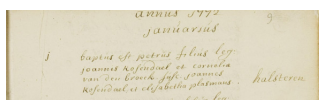 annus 1773 9
januarius
j baptus est petrus filius leg
joannis Rosendael et cornelia
van den Broeck susc joannes
Rosendael et elisabetha plasmans halsteren